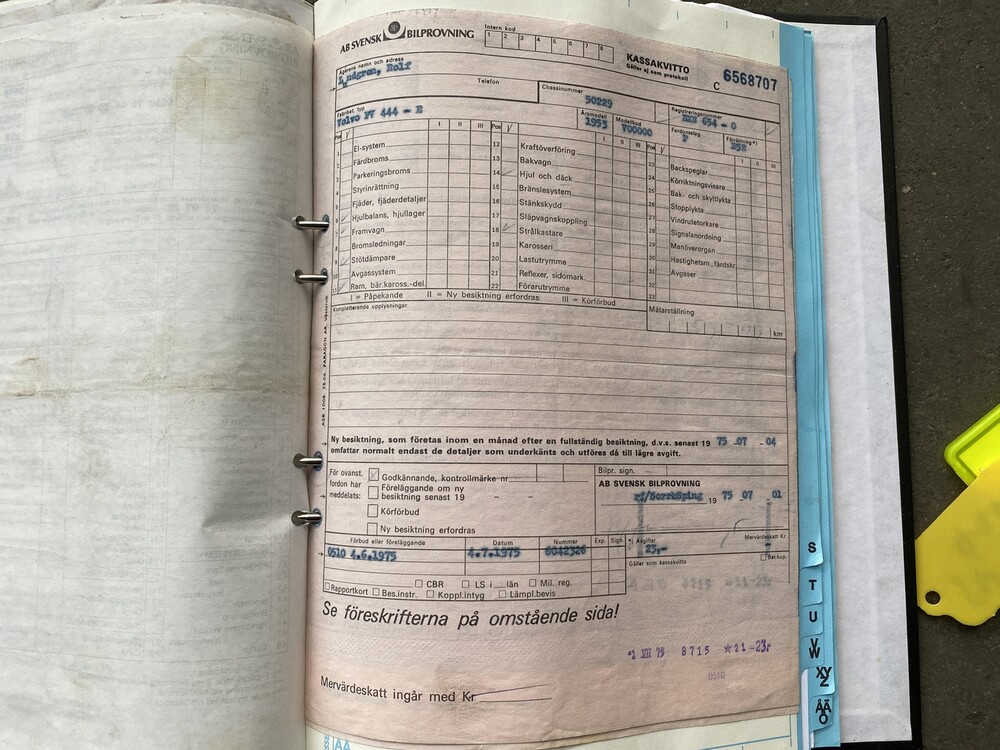 AB SVENSK BILPROVNING
Intern kod
1 2 3 4 5 6 7 8
KASSAKVITTO
Gäller ej som protokoll
C 6568707
Ägarens namn och adress
Rolf
Telefon
Chassinummer
50229
Registreringsnummer
654 - 0
Fabrikat, typ
Volvo PV 444 - E
Årsmodell
1953
Modellkod
V00000
Fordonsslag
P
Förrättning*)
Pos V I II III Pos V I II III V I II III
1 El-system
2 Färdbroms
3 Parkeringsbroms
4 Styrinrättning
5 Fjäder, fjäderdetaljer
6 Hjulbalans, hjullager
7 Framvagn
8 Bromsledningar
9 Stötdämpare
10 Avgassystem
11 Ram, bär.kaross.-del.
12 Kraftöverföring
13 Bakvagn
14 Hjul och däck
15 Bränslesystem
16 Stänkskydd
17 Släpvagnskoppling
18 Strålkastare
19 Karosseri
20 Lastutrymme
21 Reflexer, sidomark.
22 Förarutrymme
23 Backspeglar
24 Körriktningsvisare
25 Bak- och skyltlykta
26 Stopplykta
27 Vindrutetorkare
28 Signalanordning
29 Manöverorgan
30 Hastighetsm., färdskr.
31 Avgaser
32
33
I = Påpekande II = Ny besiktning erfordras III = Körförbud
Kompletterande upplysningar
Mätarställning
km
Ny besiktning, som företas inom en månad efter en fullständig besiktning, d.v.s. senast 19 75 07 04
omfattar normalt endast de detaljer som underkänts och utföres då till lägre avgift.
För ovanst. fordon har meddelats:
Godkännande, kontrollmärke nr
Föreläggande om ny
besiktning senast 19 - -
Körförbud
Ny besiktning erfordras
Bilpr. sign.
AB SVENSK BILPROVNING
rf/Norrköping 19 75 07 01
Förbud eller föreläggande
Datum
Nummer
Exp.
Sign.
*) Avgifter
Mervärdeskatt Kr
0510 4.6.1975
4.7.1975
6042326
23,-
Gäller som kassakvitto
Rapportkort
CBR
LS i län
Mil. reg.
Bes.instr.
Koppl.intyg
Lämpl.bevis
Se föreskrifterna på omstående sida!
VII 75 8715 ☆21 -23,-
0510
Mervärdeskatt ingår med Kr
S
T
U
V
W
XY
Z
ÅÄ
Ö
AA